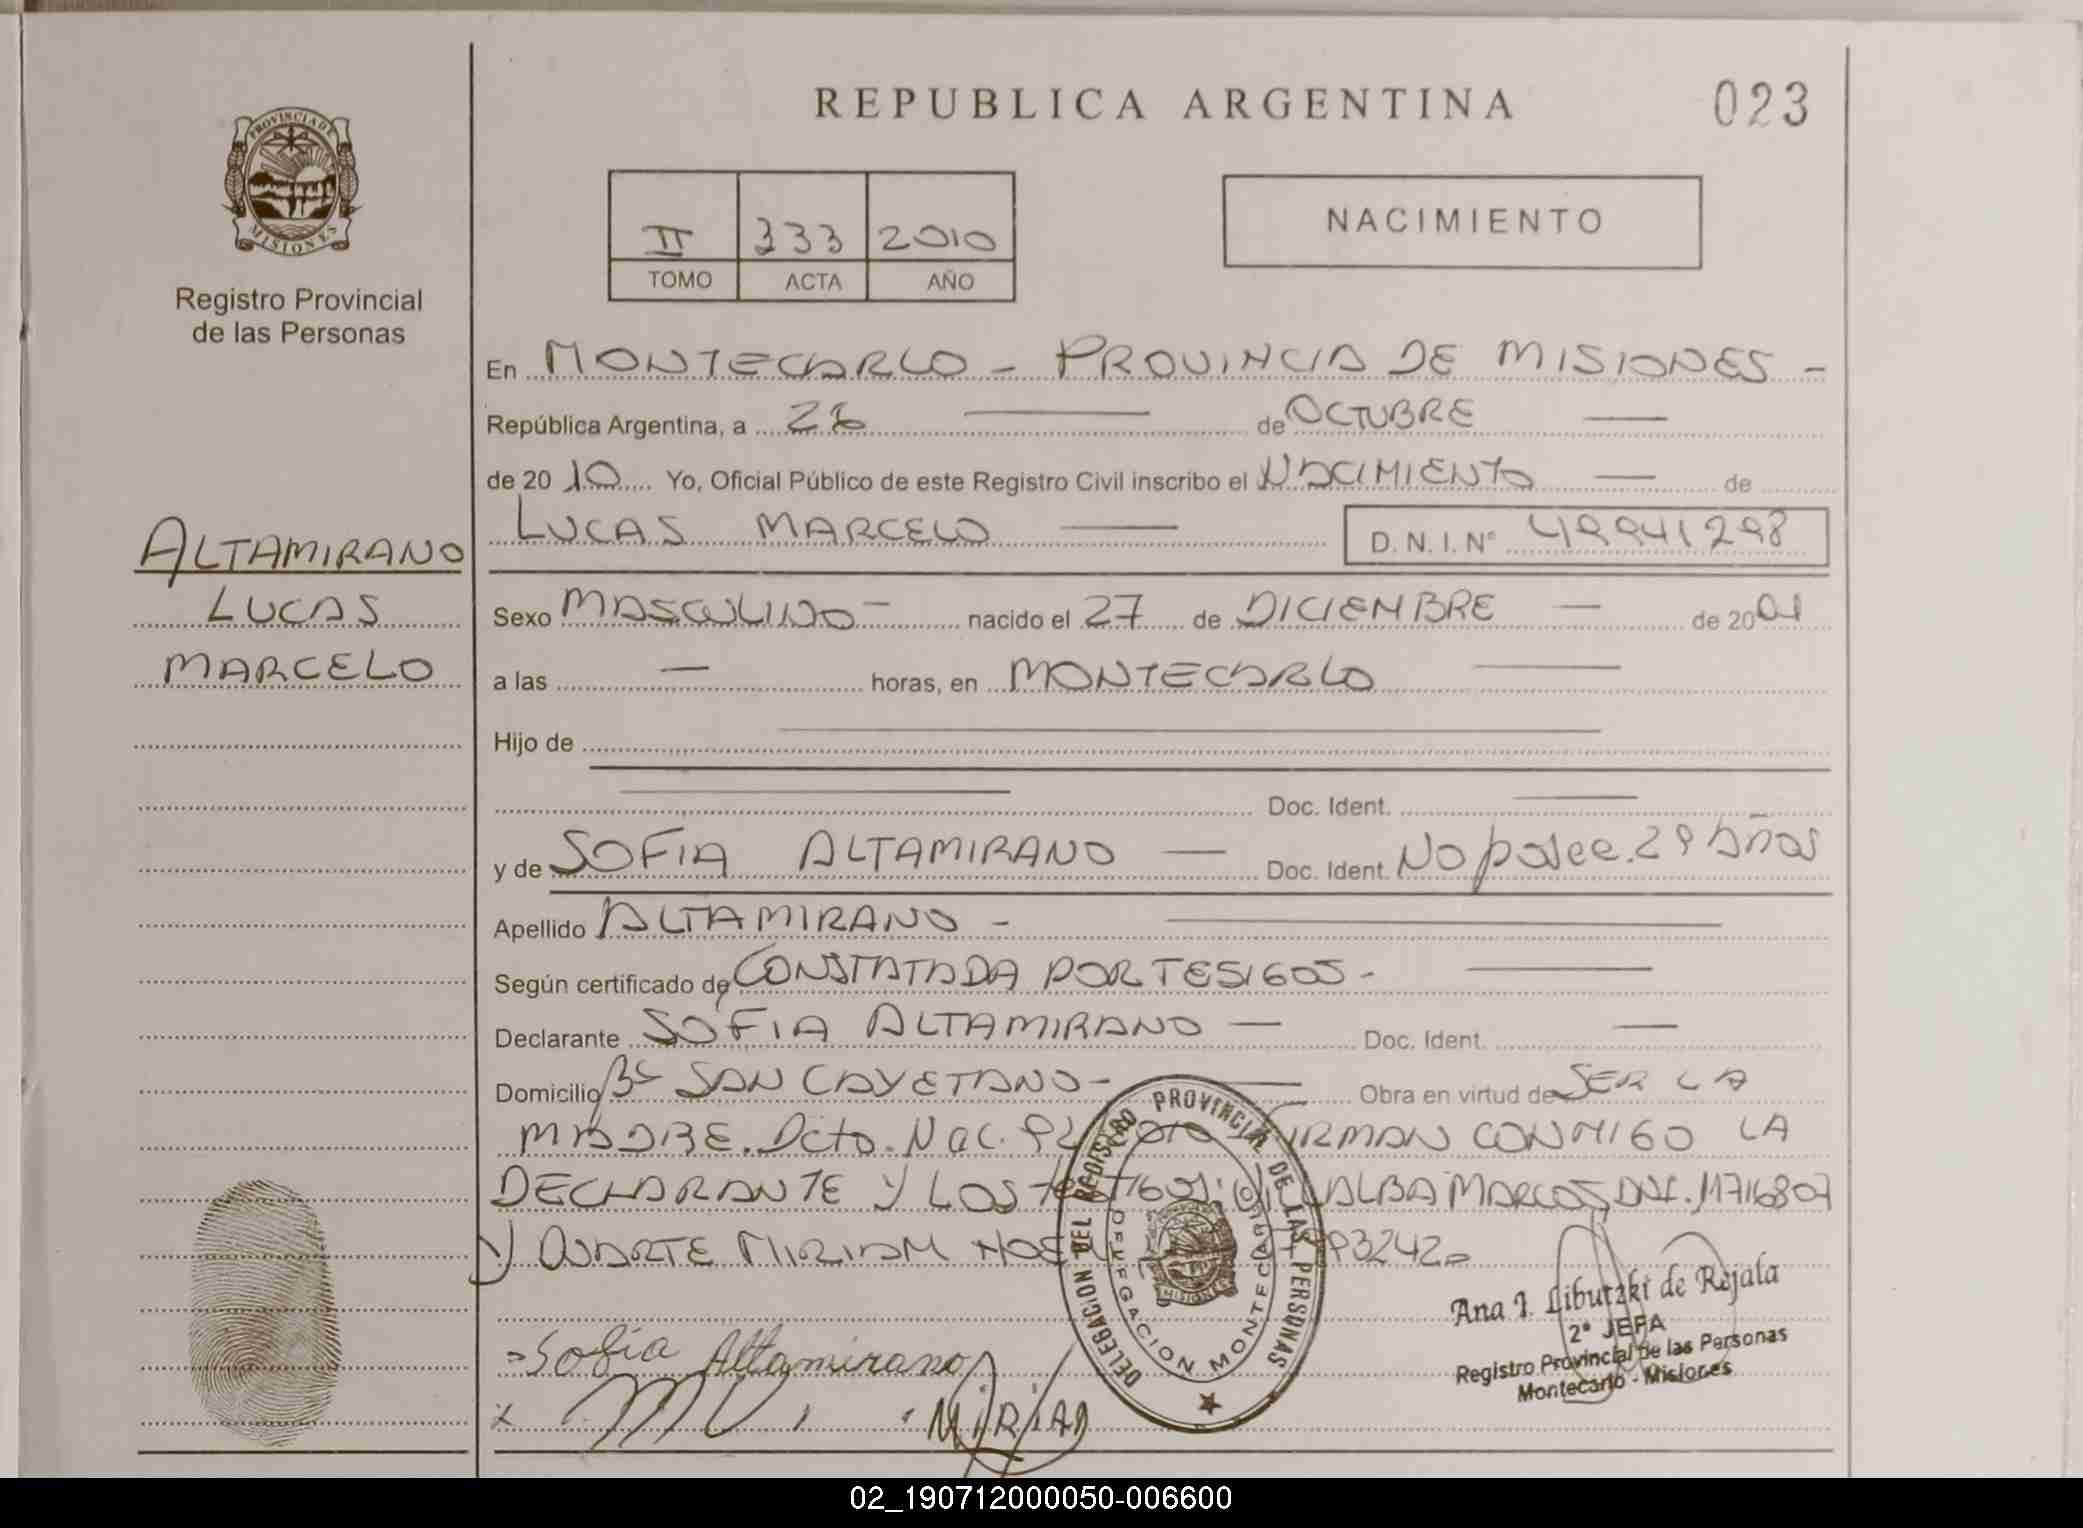 REPUBLICA ARGENTINA
023
PROVINCIA DE
MISIONES
Registro Provincial
de las Personas
II 333 2010
TOMO ACTA AÑO
NACIMIENTO
En MONTECARLO - PROVINCIA DE MISIONES -
República Argentina, a 26 de OCTUBRE
de 2010 Yo, Oficial Público de este Registro Civil inscribo el NACIMIENTO de
LUCAS MARCELO D. N. I. N° 49941298
ALTAMIRANO
LUCAS
MARCELO
Sexo MASCULINO - nacido el 27 de DICIEMBRE de 2001
a las — horas, en MONTECARLO
Hijo de
Doc. Ident.
y de SOFIA ALTAMIRANO — Doc. Ident. No posee. 29 Años
Apellido ALTAMIRANO -
Según certificado de CONSTATADA POR TESIGOS -
Declarante SOFIA ALTAMIRANO — Doc. Ident. —
Domicilio Bº SAN CAYETANO - Obra en virtud de SER LA
MADRE. Dcto. Nac. 92 010 FIRMAN CONMIGO LA
DECLARANTE Y LOS testigos: VILLALBA MARCOS, DNI. 11716807
Y DUARTE MIRIAM NOE 93242
Sofia Altamirano
MIRIAN
DELEGACION DEL REGISTRO PROVINCIAL DE LAS PERSONAS
DELEGACION MONTECARLO
MISIONES
Ana I. Libutzki de Rejala
2° JEFA
Registro Provincial de las Personas
Montecarlo - Misiones
02_190712000050-006600